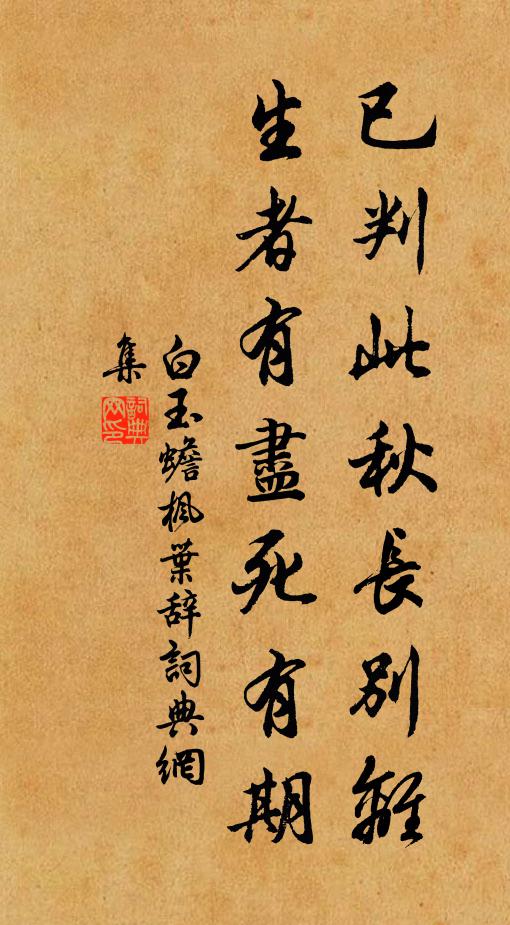 已判此秋長別離
生者有盡死有期
白玉蟾楓葉辞詞典網
集
詞典
网印